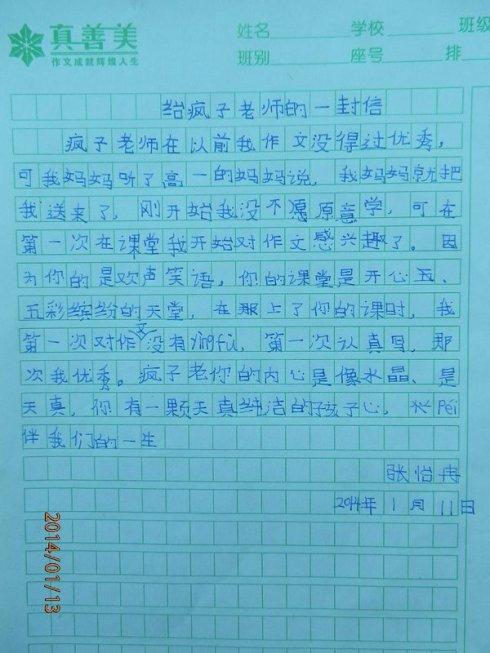 真善美
作文成就辉煌人生
姓名 学校 班级
班别 座号 排
给疯子老师的一封信
疯子老师在以前我作文没得过优秀，
可我妈妈听了高一的妈妈说，我妈妈就把
我送来了，刚开始我没不愿原意学，可在
第一次在课堂我开始对作文感兴趣了。因
为你的是欢声笑语，你的课堂是开心五、
五彩缤纷的天堂，在那上了你的课时，我
第一次对作文没有yingfu，第一次认真写，那
次我优秀。疯子老你的内心是像水晶、是
天真，你有一颗天真纯洁的孩子心，
伴我们的一生
张怡冉
2014年1月11日
2014/01/13